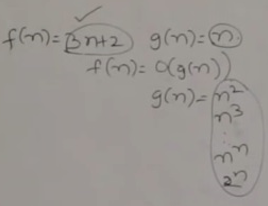 f(n)= 3n+2 g(n)= n
f(n)= O(g(n))
g(n)= n²
n³
⋮
nⁿ
2ⁿ